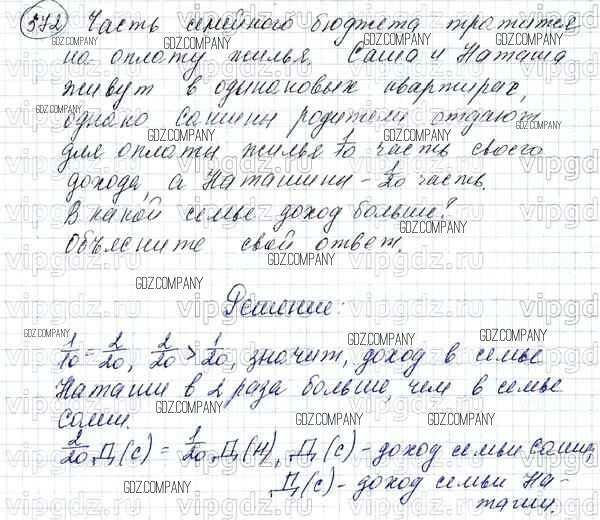 372 Часть семейного бюджета тратится
на оплату жилья. Саша и Наташа
живут в одинаковых квартирах,
однако сашины родители отдают
для оплаты жилья 1/10 часть своего
дохода, а Наташины - 1/20 часть.
В какой семье доход больше?
Объясните свой ответ.
Решение:
1/10 = 2/20, 2/20 > 1/20, значит, доход в семье
Наташи в 2 раза больше, чем в семье
Саши.
2/20 Д(С) = 1/20 Д(Н), Д(С) - доход семьи Саши,
Д(С) - доход семьи На-
таши.